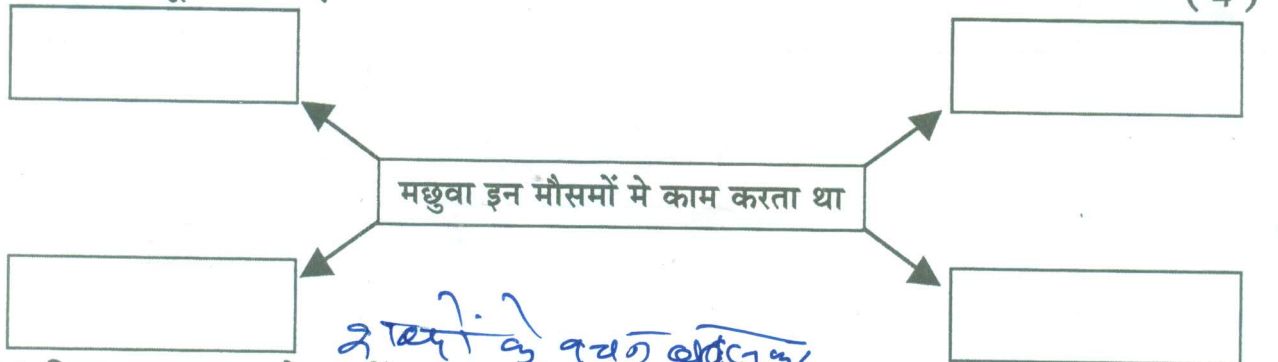 मछुवा इन मौसमों मे काम करता था
शब्दों के वचन बदलकर